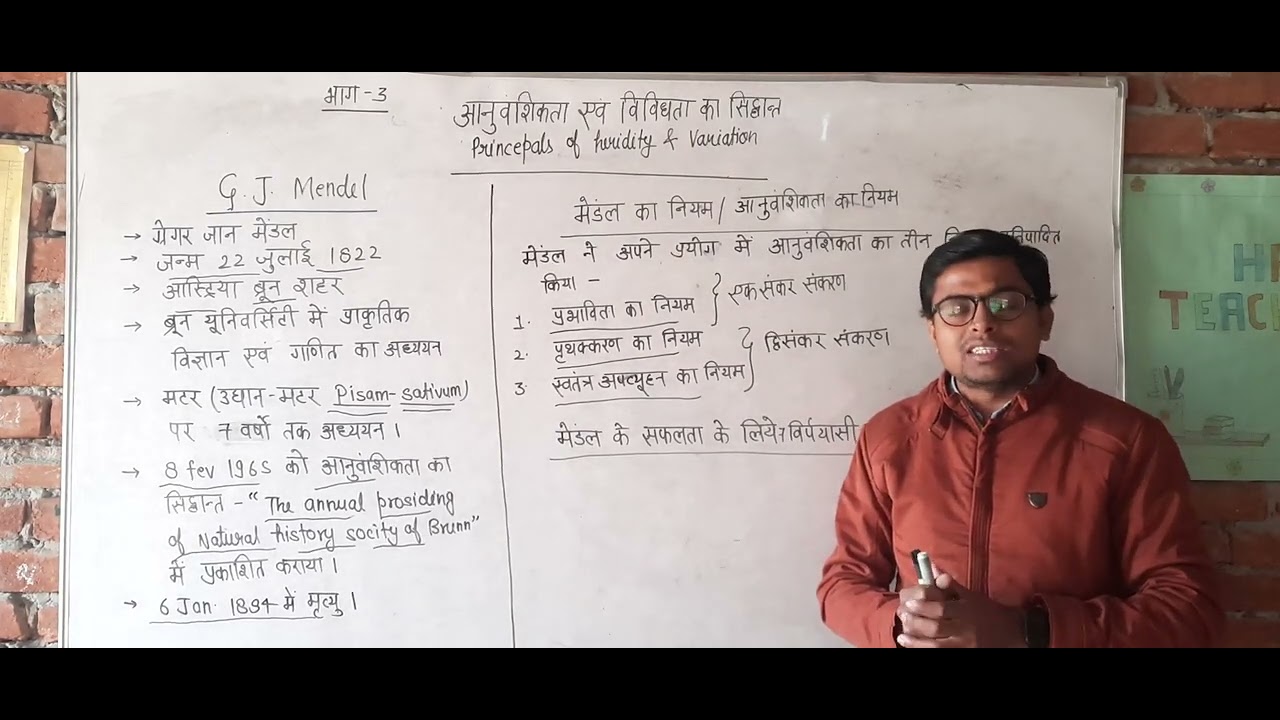 भाग-3
आनुवंशिकता एवं विविधता का सिद्धान्त
Princepals of heridity & Variation
G. J. Mendel
→ ग्रेगर जान मेंडल
→ जन्म 22 जुलाई 1822
→ आस्ट्रिया ब्रून शहर
→ ब्रून यूनिवर्सिटी में प्राकृतिक
विज्ञान एवं गणित का अध्ययन
→ मटर (उद्यान-मटर Pisam-sativum)
पर 7 वर्षो तक अध्ययन।
→ 8 fev 1965 को आनुवंशिकता का
सिद्धान्त - "The annual prosiding
of Natural history socity of Brunn"
में प्रकाशित कराया।
→ 6 Jan. 1894 में मृत्यु।
मेडंल का नियम / आनुवंशिकता का नियम
मेंडल ने अपने प्रयोग में आनुवंशिकता का तीन
किया -
1. प्रभाविता का नियम } एकसंकर संकरण
2. पृथक्करण का नियम } द्विसंकर संकरण
3. स्वतंत्र अपव्यूहन का नियम
मेडंल के सफलता के लिये 7 विर्पयासी
HE
TEACH